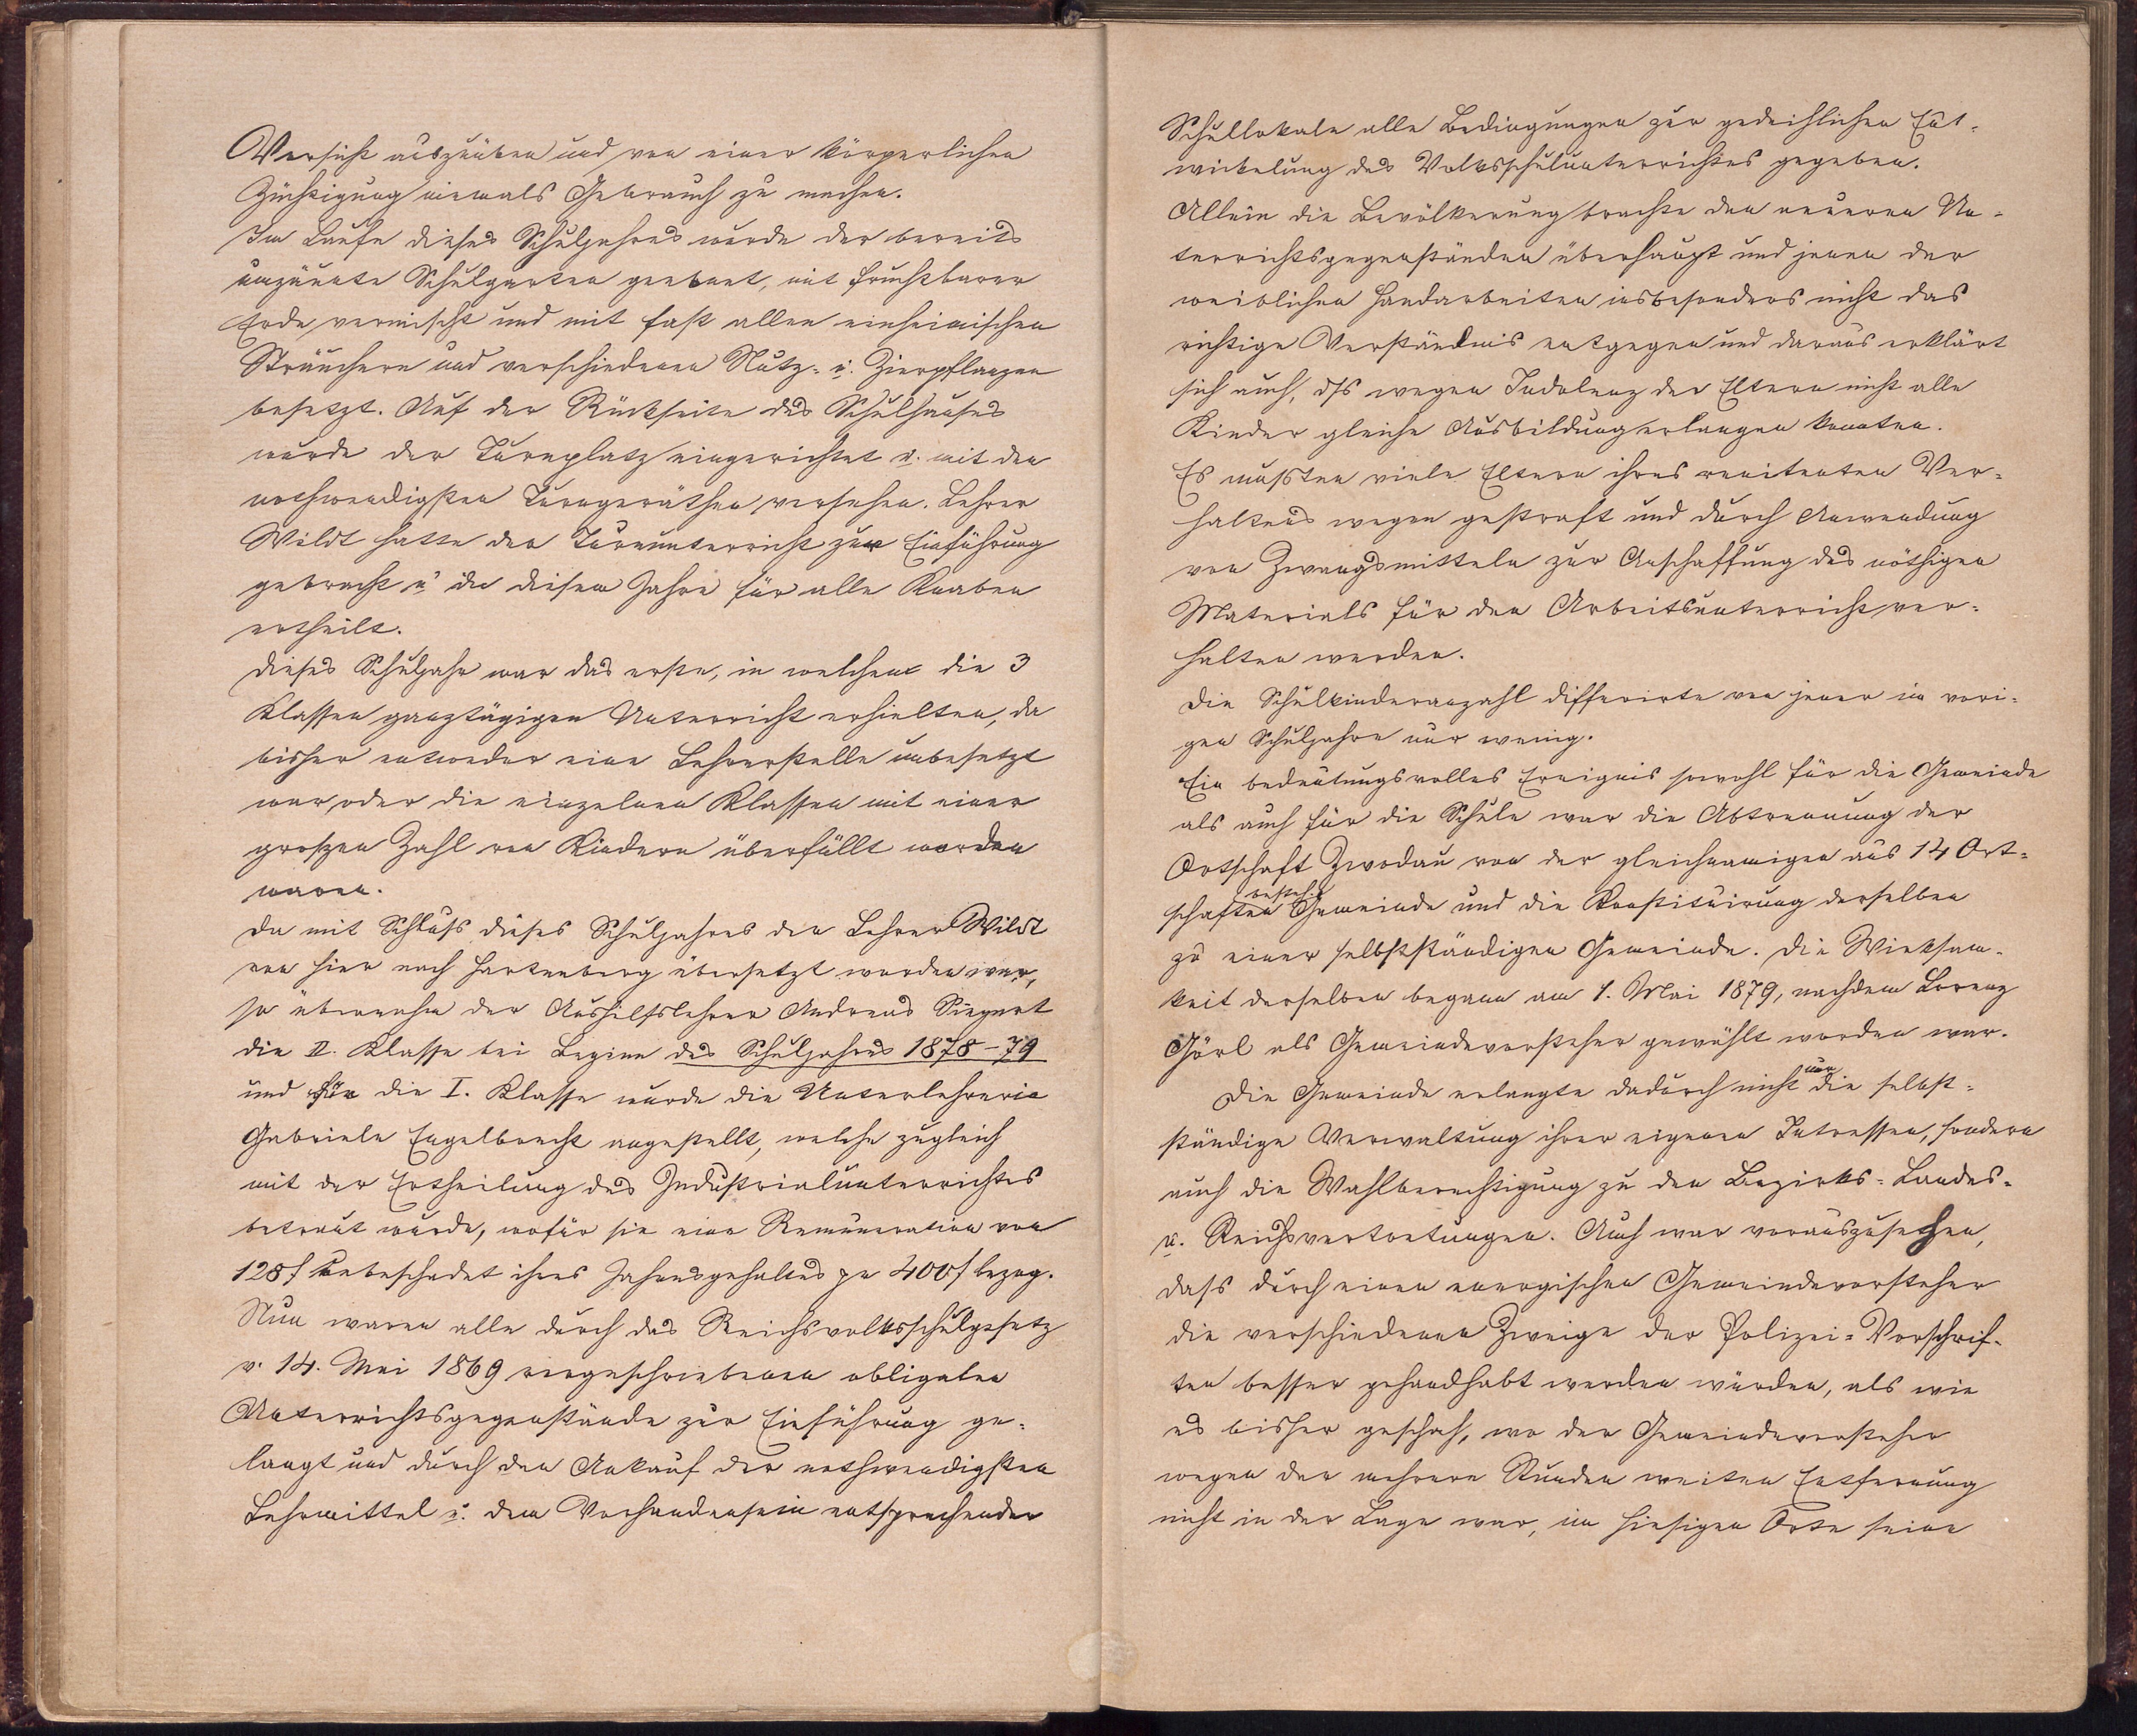 Vorsicht auszuüben und von einer körperlichen
Züchtigung niemals Gebrauch zu machen.
Im Laufe dieses Schuljahres wurde der bereits
umzäunte Schulgarten geebnet, mit fruchtbarer
Erde vermischt und mit fast allen einheimischen
Sträuchern und verschiedenen Nutz- u. Zierpflanzen
besetzt. Auf der Rückseite des Schulhauses
wurde der Turnplatz eingerichtet u. mit den
nothwendigsten Turngeräthen versehen. Lehrer
Wildt hatte den Turnunterricht zur Einführung
gebracht u. in diesem Jahre für alle Knaben
ertheilt.
Dieses Schuljahr war das erste, in welchem die 3
Klassen ganztägigen Unterricht erhielten, da
bisher entweder eine Lehrerstelle unbesetzt
war, oder die einzelnen Klassen mit einer
groszen Zahl von Kindern überfüllt worden
waren.
Da mit Schluss dieses Schuljahres der Lehrer Wildt
von hier nach Hartenberg übersetzt worden war,
so übernahm der Aushilfslehrer Andreas Siegert
die II. Klasse bei Beginn des Schuljahres 1878-79
und für die I. Klasse wurde die Unterlehrerin
Gabriele Engelbrecht angestellt, welche zugleich
mit der Ertheilung des Industrialunterrichtes
betraut wurde, wofür sie eine Remuneration von
128 f unbeschadet ihres Jahresgehaltes zu 400 f bezog.
Nun waren alle durch das Reichsvolksschulgesetz
v. 14. Mai 1869 vorgeschriebenen obligaten
Unterrichtsgegenstände zur Einführung ge-
langt und durch den Ankauf der nothwendigsten
Lehrmittel u. dem Vorhandensein entsprechender
Schullokale alle Bedingungen zur gedeihlichen Ent-
wickelung des Volksschulunterrichtes gegeben.
Allein die Bevölkerung brachte den neueren Un-
terrichtsgegenständen überhaupt und jenen der
weiblichen Handarbeiten insbesonders nicht das
richtige Verständnis entgegen und daraus erklärt
sich auch, dss wegen Indolenz der Eltern nicht alle
Kinder gleiche Ausbildung erlangen konnten.
Es mussten viele Eltern ihres renitenten Ver-
haltens wegen gestraft und durch Anwendung
von Zwangsmitteln zur Anschaffung des nöthigen
Materials für den Arbeitsunterricht ver-
halten werden.
Die Schulkinderanzahl differirte von jener im vori-
gen Schuljahre nur wenig.
Ein bedeutungsvolles Ereignis sowohl für die Gemeinde
als auch für die Schule war die Abtrennung der
Ortschaft Zwodau von der gleichnamigen aus 14 Ort-
schaften besteh. Gemeinde und die Konstituirung derselben
zu einer selbstständigen Gemeinde. Die Wirksam-
keit derselben begann am 1. Mai 1879, nachdem Lorenz
Görl als Gemeindevorsteher gewählt worden war.
Die Gemeinde erlangte dadurch nicht nur die selbst-
ständige Verwaltung ihrer eigenen Intressen, sondern
auch die Wahlberechtigung zu den Bezirks- Landes-
u. Reichsvertretungen. Auch war vorauszusehen,
dass durch einen energischen Gemeindevorsteher
die verschiedenen Zweige der Polizei-Vorschrif-
ten besser gehandhabt werden würden, als wie
es bisher geschah, wo der Gemeindevorsteher
wegen der mehrere Stunden weiten Entfernung
nicht in der Lage war, im hiesigen Orte seine